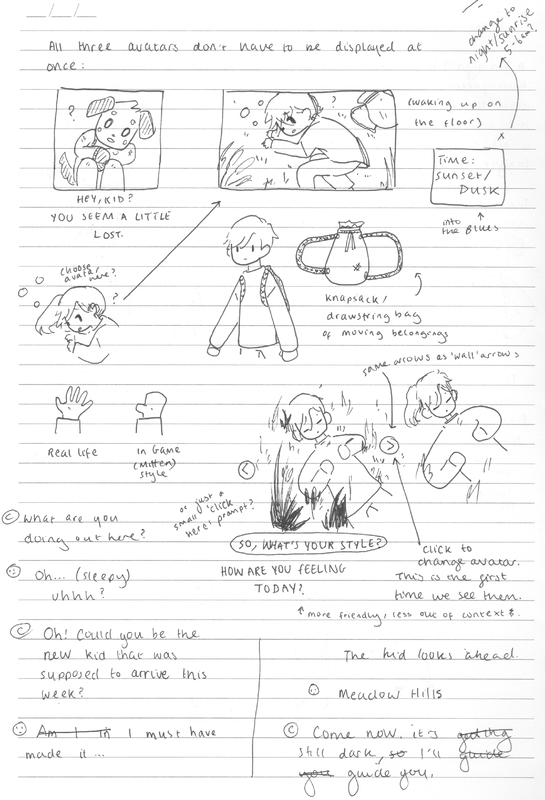 __/__/__
change to
night/sunrise
5-6am?
All three avatars don't have to be displayed at
once:
?
?
(waking up on
the floor)
x
Time:
sunset/
Dusk
into
the Blues
HEY, KID?
YOU SEEM A LITTLE
LOST.
choose
avatar
here?
?
knapsack/
drawstring bag
of moving belongings
same arrows as 'wall' arrows
Real life
In Game
(Mitten)
style
<
>
or just a
small 'click
here' prompt?
SO, WHAT'S YOUR STYLE?
HOW ARE YOU FEELING
TODAY?
↑ more friendly, less out of context
click to
change avatar.
This is the first
time we see them.
C What are you
doing out here?
Oh... (sleepy)
uhhh?
C Oh! Could you be the
new kid that was
supposed to arrive this
week?
Am I in I must have
made it...
The kid looks ahead.
Meadow Hills
C Come now. it's getting
still dark, so I'll guide
you guide you.